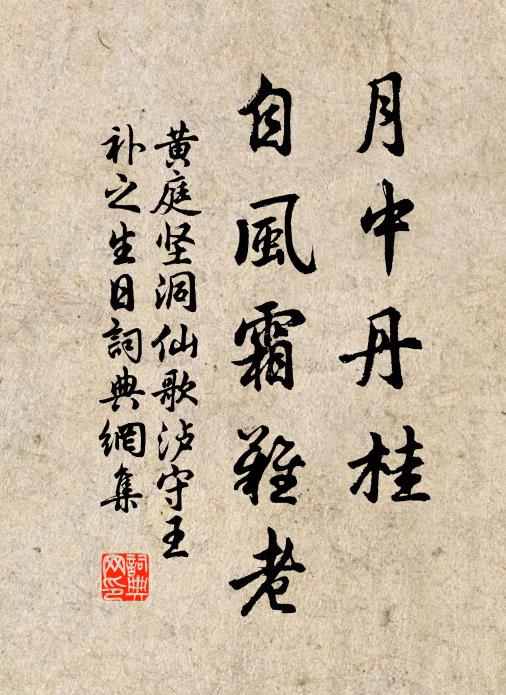 月中丹桂
自風霜難老
黄庭坚洞仙歌泸守王
补之生日詞典網集
詞典
网印